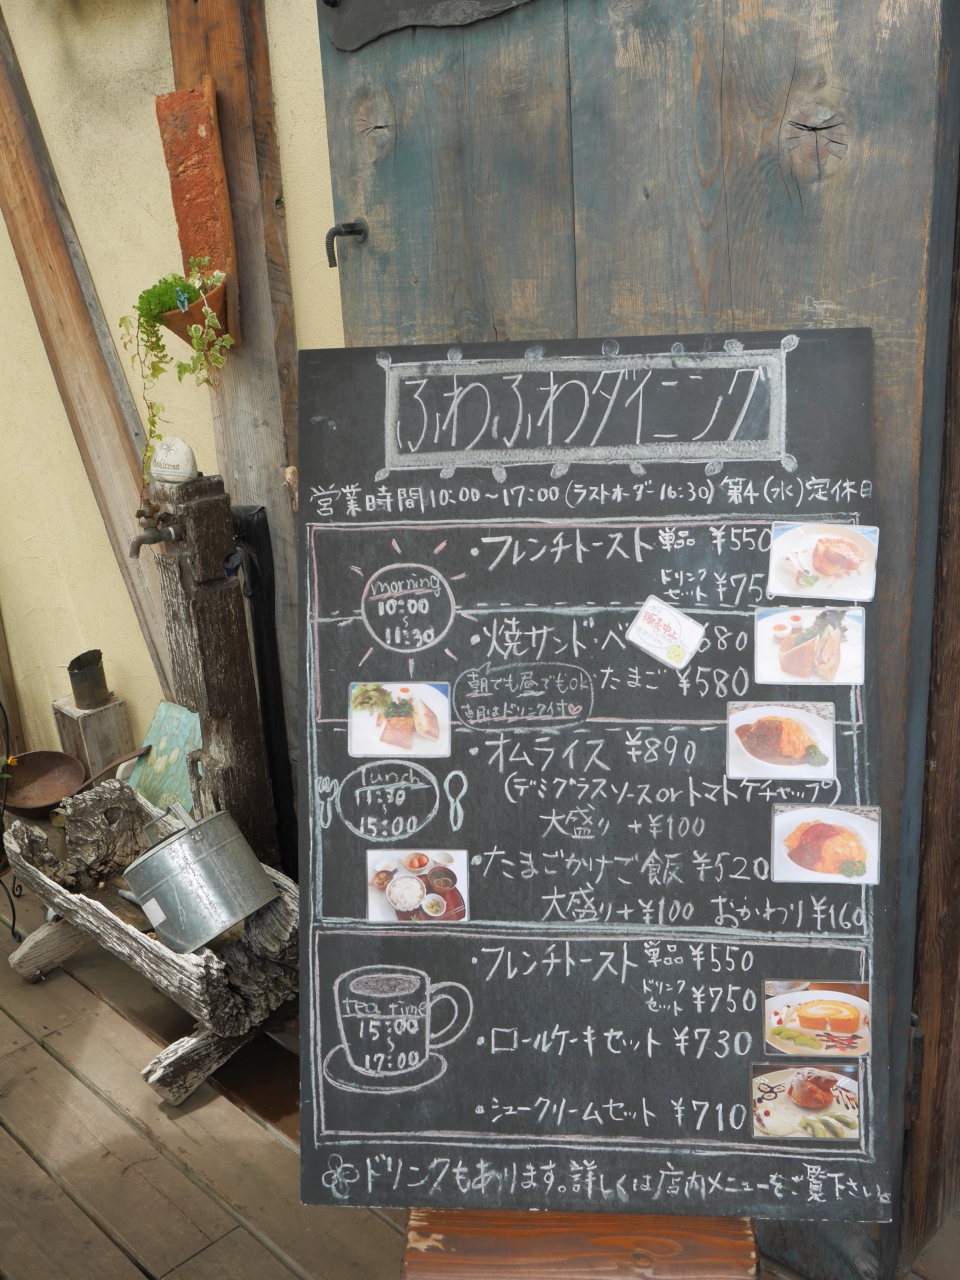 ふわふわダイニング
営業時間10:00〜17:00(ラストオーダー16:30)第4(水)定休日
welcome
morning
10:00
〜
11:30
・フレンチトースト 単品 ¥550
ドリンクセット ¥75
・焼サンド・ベ 680
販売中止
・たまご ¥580
朝でも昼でもOK
朝はドリンク付♡
lunch
11:30
〜
15:00
・オムライス ¥890
(デミグラスソースorトマトケチャップ)
大盛り +¥100
・たまごかけご飯 ¥520
大盛り+¥100 おかわり¥160
tea time
15:00
〜
17:00
・フレンチトースト 単品 ¥550
ドリンクセット ¥750
・ロールケーキセット ¥730
・シュークリームセット ¥710
ドリンクもあります。詳しくは店内メニューをご覧下さい。